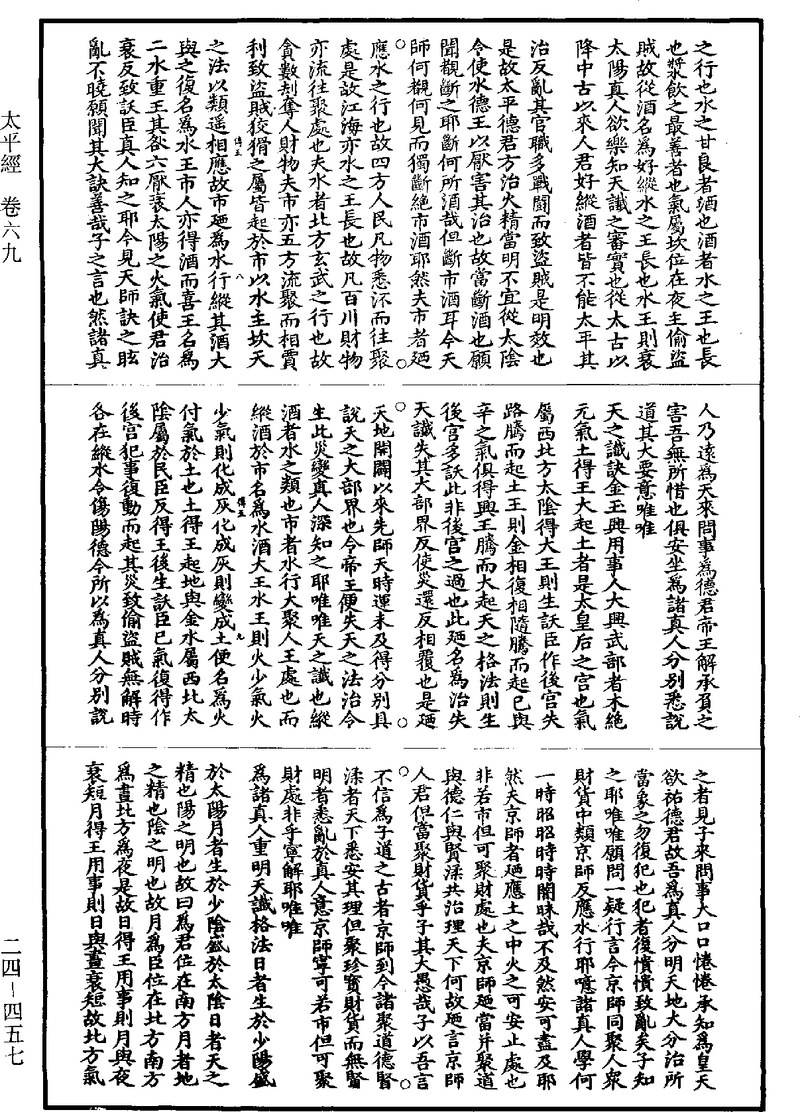 之行也水之甘良者酒也酒者水之王也長
也漿飲之最善者也氣屬坎位在夜主偷盜
賊故從酒名為好縱水之王長也水王則衰
太陽真人欲樂知天讖之審實也從太古以
降中古以來人君好縱酒者皆不能太平其
治反亂其官職多戰鬭而致盜賊是明效也
是故太平德君方治火精當明不宜從太陰
令使水德王以厭害其治也故當斷酒也願
聞觀斷之耶斷何所酒哉但斷市酒耳今天
師何覩何見而獨斷絕市酒耶然夫市者廼
應水之行也故四方人民凡物悉汙而往聚
處是故江海亦水之王長也故凡百川財物
亦流往聚處也夫水者北方玄武之行也故
貪數刦奪人財物夫市亦五方流聚而相賈
利致盜賊狡猾之屬皆起於市以水主坎天
之法以類遥相應故市廼為水行縱其酒大
與之復名為水王市人亦得酒而喜王名為
二水重王其咎六厭衰太陽之火氣使君治
衰反致訞臣真人知之耶今見天師訣之眩
亂不曉願聞其大訣善哉子之言也然諸真
人乃遠為天來問事為德君帝王解承負之
害吾無所惜也俱安坐為諸真人分別悉說
道其大要意唯唯
天之讖訣金王興用事人大興武部者木絕
元氣土得王大起土者是太皇后之宫也氣
屬西北方太陰得大王則生訞臣作後宫失
路騰而起土王則金相復相隨騰而起已與
辛之氣俱得興王騰而大起天之格法則生
後宫多訞此非後宫之過也此廼名為治失
天讖失其大部界反使災還反相覆也是廼
天地開闢以來先師天時運未及得分別具
說天之大部界也令帝王便失天之法治令
生此災變真人深知之耶唯唯天之讖也縱
酒者水之類也市者水行大聚人王處也而
縱酒於市名為水酒大王水王則火少氣火
少氣則化成灰化成灰則變成土便名為火
付氣於土也土得王起地與金水屬西北太
陰屬於民臣反得王後生訞臣已氣復得作
後宫犯事復動而起其災致偷盜賊無解時
咎在縱水令傷陽德令所以為真人分別說
之者見子來問事大口口惓惓承知為皇天
欲祐德君故吾為真人分明天地大分治所
當象之勿復犯也犯者復憒憒致亂矣子知
之耶唯唯願問一疑行言今京師同聚人衆
財貨中類京師反應水行耶噫諸真人學何
一時昭昭時時闇昧哉不及然安可盡及耶
然天京師者廼應土之中火之可安止處也
非若市但可聚財處也夫京師廼當并聚道
與德仁與賢渘共治理天下何故廼言京師
人君但當聚財貨乎子其大愚哉子以吾言
不信為子道之古者京師到今諸聚道德賢
渘者天下悉安其理但聚珍寶財貨而無賢
明者悉亂於真人意京師寧可若市但可聚
財處非乎寧解耶唯唯
為諸真人重明天讖格法日者生於少陽盛
於太陽月者生於少陰盛於太陰日者天之
精也陽之明也故日為君位在南方月者地
之精也陰之明也故月為臣位在北方南方
為晝北方為夜是故日得王用事則月與夜
衰短月得王用事則日與晝衰短故北方氣
太平經 卷六九
二四-四五七
傳五
八
傳五
九